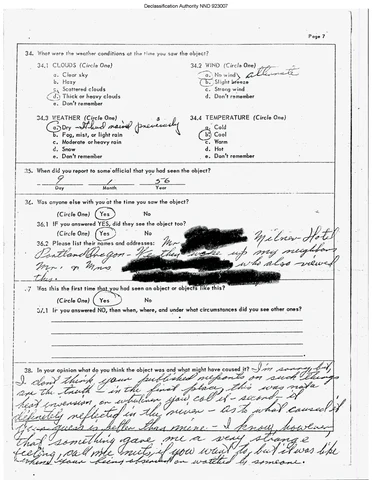 Declassification Authority NND 923007
Page 7
34. What were the weather conditions at the time you saw the object?
34.1 CLOUDS (Circle One)
a. Clear sky
b. Hazy
c. Scattered clouds
d. Thick or heavy clouds
e. Don't remember
34.2 WIND (Circle One)
a. No wind alternate
b. Slight breeze
c. Strong wind
d. Don't remember
34.3 WEATHER (Circle One)
a. Dry - it had rained previously
b. Fog, mist, or light rain
c. Moderate or heavy rain
d. Snow
e. Don't remember
34.4 TEMPERATURE (Circle One)
a. Cold
b. Cool
c. Warm
d. Hot
e. Don't remember
35. When did you report to some official that you had seen the object?
9 1 56
Day Month Year
36. Was anyone else with you at the time you saw the object?
(Circle One) Yes No
36.1 IF you answered YES, did they see the object too?
(Circle One) Yes No
36.2 Please list their names and addresses: Mr. Milner Hotel
Portland Oregon - We then woke up my neighbors
Mr. n Mrs who also viewed
this.
7 Was this the first time that you had seen an object or objects like this?
(Circle One) Yes No
37.1 IF you answered NO, then when, where, and under what circumstances did you see other ones?
38. In your opinion what do you think the object was and what might have caused it? I'm sorry but,
I don't think your published reports on such things
are the truth - in the first place, this was not a
heat inversion, or whatever you call it - second - it
definitely reflected in the river - as to what caused it
guess is better than mine - I know, however,
that something gave me a very strange
feeling, call me nuts, if you want to, but it was like
being observed or watched by someone.